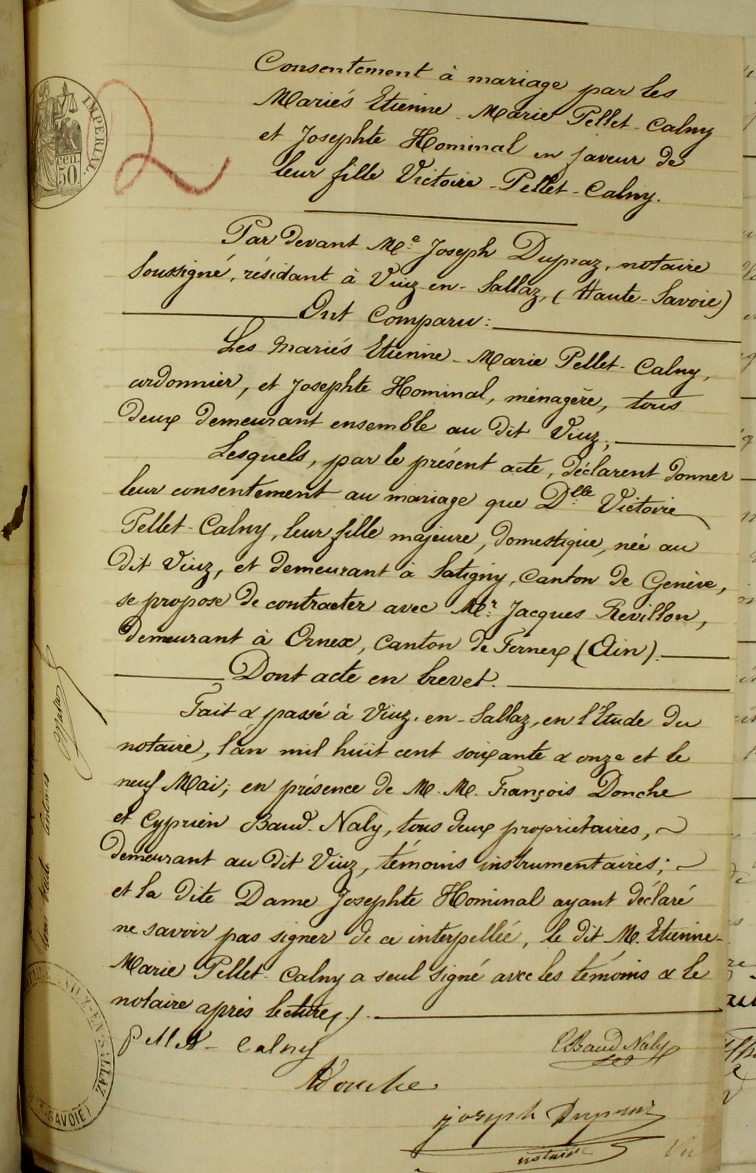 Consentement à mariage par les
Mariés Etienne-Marie Pellet-Calny
et Josephte Hominal en faveur de
leur fille Victoire-Pellet-Calny.
IMPERIAL
50
Par devant Me Joseph Dupraz, notaire
soussigné, résidant à Viuz-en-Sallaz, (Haute-Savoie)
Ont Comparu:
Les mariés Etienne-Marie Pellet-Calny,
cordonnier, et Josephte Hominal, ménagère, tous
deux demeurant ensemble au dit Viuz,
Lesquels, par le présent acte, déclarent donner
leur consentement au mariage que Dlle Victoire
Pellet-Calny, leur fille majeure, domestique, née au
dit Viuz, et demeurant à Satigny, Canton de Genève,
se propose de contracter avec Mr. Jacques Revillon,
demeurant à Ornex, Canton de Ferney (Ain).
Dont acte en brevet.
Fait & passé à Viuz-en-Sallaz, en l'Etude du
notaire, l'an mil huit cent soixante & onze et le
neuf Mai; en présence de M. M. François Donche
et Cyprien Baud-Naly, tous deux propriétaires,
demeurant au dit Viuz, témoins instrumentaires;
et la dite Dame Josephte Hominal ayant déclaré
ne savoir pas signer de ce interpellée, le dit M. Etienne-
Marie Pellet-Calny a seul signé avec les témoins & le
notaire après lecture.
Pellet-Calny
CBaud Naly
Donche
joseph Dupraz
notaire
VIUZ-EN-SALLAZ
SAVOIE)